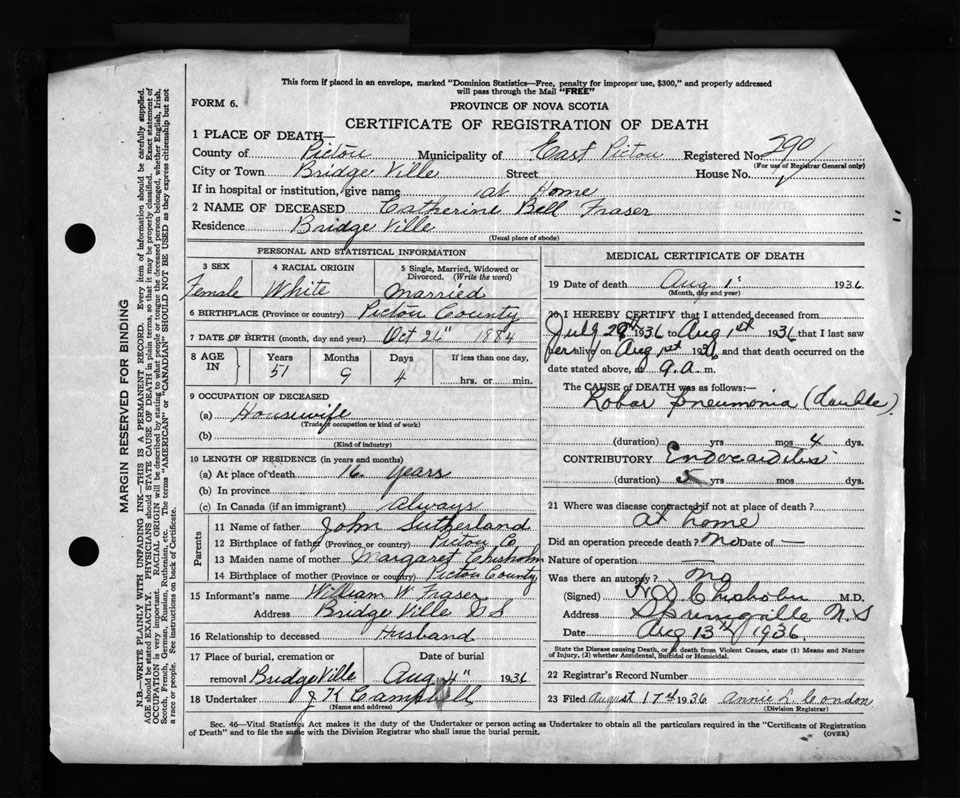 This form if placed in an envelope, marked "Dominion Statistics—Free, penalty for improper use, $300," and properly addressed
will pass through the Mail "FREE"
FORM 6.
PROVINCE OF NOVA SCOTIA
CERTIFICATE OF REGISTRATION OF DEATH
1 PLACE OF DEATH—
County of Pictou Municipality of East Pictou Registered No. 290
(For use of Registrar General only)
City or Town Bridge Ville Street House No.
If in hospital or institution, give name at Home
2 NAME OF DECEASED Catherine Bell Fraser
Residence Bridge Ville
(Usual place of abode)
PERSONAL AND STATISTICAL INFORMATION
3 SEX 4 RACIAL ORIGIN 5 Single, Married, Widowed or
Divorced. (Write the word)
Female White Married
6 BIRTHPLACE (Province or country) Pictou County
7 DATE OF BIRTH (month, day and year) Oct 26" 1884
8 AGE IN Years Months Days If less than one day,
51 9 4 hrs. or min.
9 OCCUPATION OF DECEASED
(a) Housewife
(Trade, occupation or kind of work)
(b)
(Kind of industry)
10 LENGTH OF RESIDENCE (in years and months)
(a) At place of death 16 years
(b) In province
(c) In Canada (if an immigrant) always
Parents
11 Name of father John Sutherland
12 Birthplace of father (Province or country) Pictou Co
13 Maiden name of mother Margaret Chisholm
14 Birthplace of mother (Province or country) Pictou County
15 Informant's name William W. Fraser
Address Bridge Ville N S
16 Relationship to deceased Husband
17 Place of burial, cremation or Date of burial
removal BridgeVille Aug 4" 1936
18 Undertaker J K Campbell
(Name and address)
MEDICAL CERTIFICATE OF DEATH
19 Date of death Aug 1 1936
(Month, day and year)
20 I HEREBY CERTIFY that I attended deceased from
July 29th 1936 to Aug 1st 1936 that I last saw
her alive on Aug 1st 1936 and that death occurred on the
date stated above, at 9. a. m.
The CAUSE OF DEATH was as follows:—
Lobar Pneumonia (double)
(duration) yrs mos 4 dys.
CONTRIBUTORY Endocarditis
(duration) 5 yrs mos dys.
21 Where was disease contracted if not at place of death?
at home
Did an operation precede death? No Date of —
Nature of operation —
Was there an autopsy? no
(Signed) Chisholm M.D.
Address Springville N.S
Date Aug 13th 1936.
State the Disease causing Death, or in death from Violent Causes, state (1) Means and Nature
of Injury, (2) whether Accidental, Suicidal or Homicidal.
22 Registrar's Record Number
23 Filed August 17th 1936 Annie L. Condon
(Division Registrar)
Sec. 46—Vital Statistics Act makes it the duty of the Undertaker or person acting as Undertaker to obtain all the particulars required in the "Certificate of Registration
of Death" and to file the same with the Division Registrar who shall issue the burial permit.
(OVER)
MARGIN RESERVED FOR BINDING
N.B.—WRITE PLAINLY WITH UNFADING INK—THIS IS A PERMANENT RECORD. Every item of information should be carefully supplied.
AGE should be stated EXACTLY. PHYSICIANS should STATE CAUSE OF DEATH in plain terms, so that it may be properly classified. Exact statement of
OCCUPATION is very important. RACIAL ORIGIN will be described by stating to what people or tongue the deceased person belonged, whether English, Irish,
Scotch, French, German, Russian, Ruthenian, etc. The terms "AMERICAN" or "CANADIAN" SHOULD NOT BE USED as they express citizenship but not
a race or people. See instructions on back of Certificate.